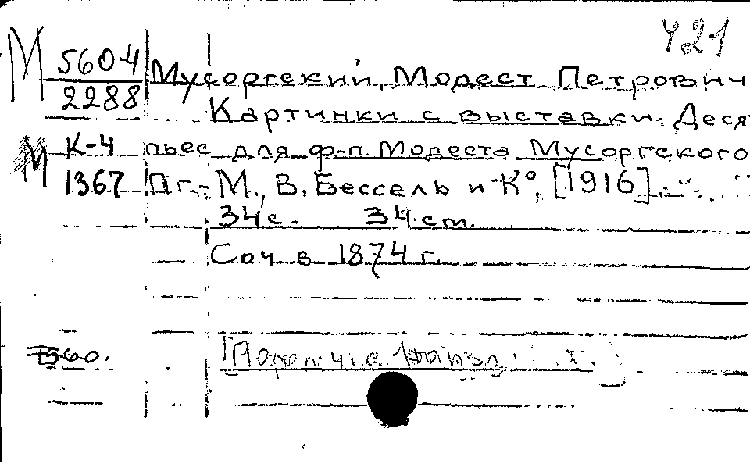 421
М 5604 Мусоргский, Модест Петрович
2288 Картинки с выставки. Деся
М К-4 пьес для ф-п. Модеста Мусоргского
1367 Пг.- М., В. Бессель и К°, [1916].
34 с. 34 см.
Соч в 1874 г.